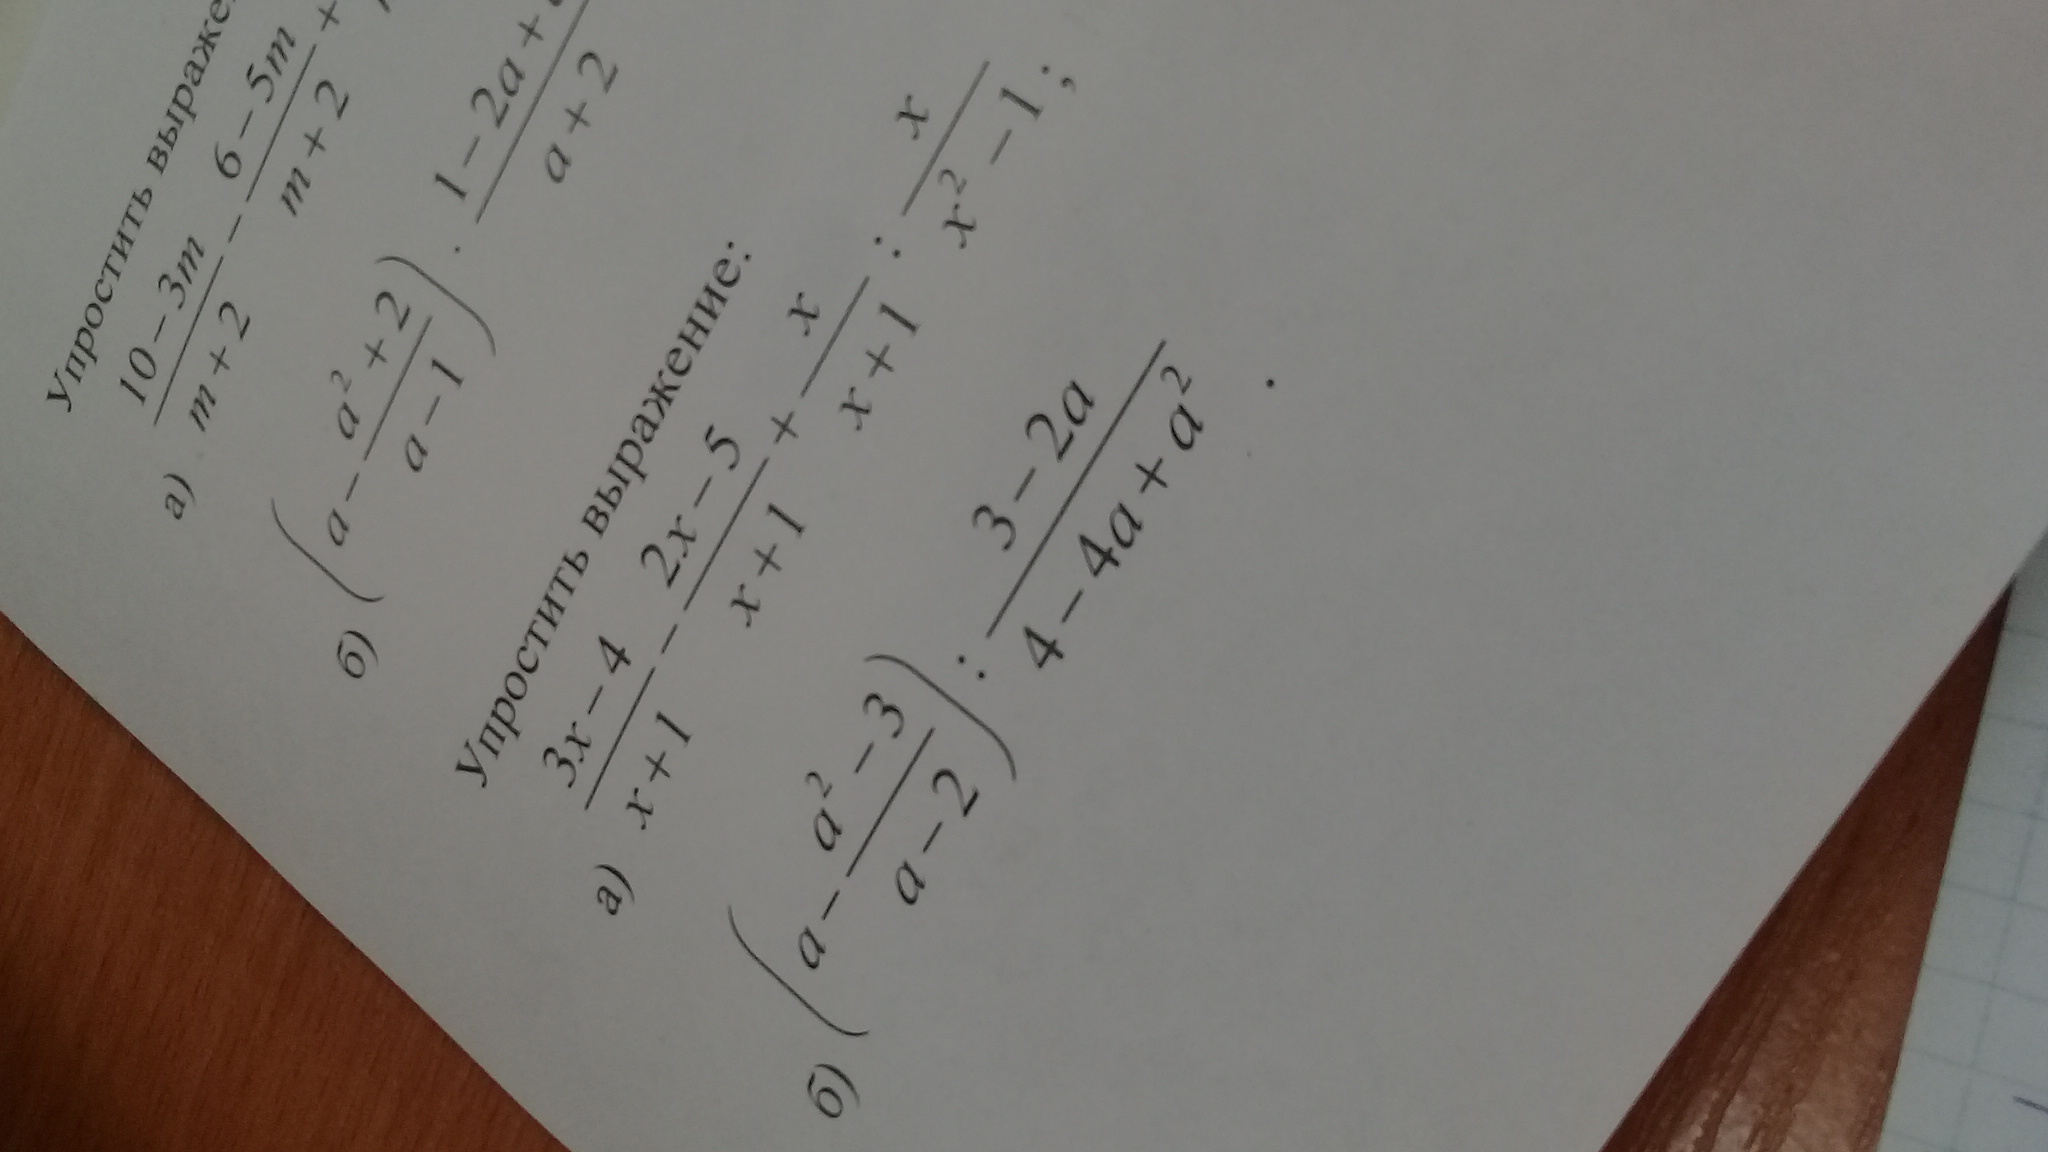 Упростить
а) \frac{10-3m}{m+2} - \frac{6-5m}{m+2} +
б) \left(a - \frac{a^2+2}{a-1}\right) \cdot \frac{1-2a+}{a+2}
Упростить выражение:
а) \frac{3x-4}{x+1} - \frac{2x-5}{x+1} + \frac{x}{x+1} : \frac{x}{x^2-1};
б) \left(a - \frac{a^2-3}{a-2}\right) : \frac{3-2a}{4-4a+a^2}.